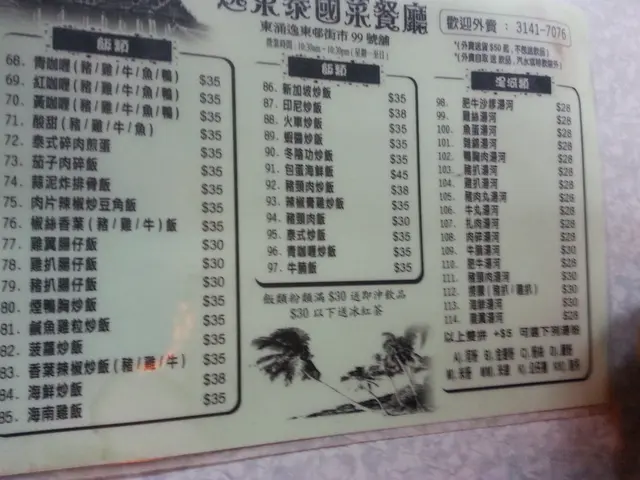 逸東泰國菜餐廳
東涌逸東邨街市 99 號舖
營業時間：10:30am - 10:30pm (星期一至日)
歡迎外賣：3141-7076
飯類
68. 青咖喱 (豬/雞/牛/魚/鴨) $35
69. 紅咖喱 (豬/雞/牛/魚/鴨) $35
70. 黃咖喱 (豬/雞/牛/魚/鴨) $35
71. 酸甜 (豬/雞/牛/魚) $35
72. 泰式碎肉煎蛋 $35
73. 茄子肉碎飯 $35
74. 蒜泥炸排骨飯 $35
75. 肉片辣椒炒豆角飯 $35
76. 椒絲香葉 (豬/雞/牛) 飯 $35
77. 雞翼腸仔飯 $30
78. 雞扒腸仔飯 $30
79. 豬扒腸仔飯 $30
80. 煙鴨胸炒飯 $35
81. 鹹魚雞粒炒飯 $35
82. 菠蘿炒飯 $35
83. 香葉辣椒炒飯 (豬/雞/牛) $35
84. 海鮮炒飯 $38
85. 海南雞飯 $35
飯類
86. 新加坡炒飯 $35
87. 印尼炒飯 $35
88. 火車炒飯 $38
89. 蝦醬炒飯 $35
90. 冬陰功炒飯 $35
91. 包蛋海鮮飯 $45
92. 豬頸肉炒飯 $38
93. 辣椒膏雞炒飯 $35
94. 豬頸肉飯 $30
95. 泰式炒飯 $35
96. 青咖喱炒飯 $35
97. 牛腩飯 $35
飯類粉類滿 $30 送即沖飲品
$30 以下送冰紅茶
98. 肥牛沙嗲湯河 $28
99. 雞絲湯河 $28
100. 魚蛋湯河 $28
101. 雜錦湯河 $28
102. 鴨胸肉湯河 $28
103. 豬扒湯河 $28
104. 雞扒湯河 $28
105. 豬肉丸湯河 $28
106. 牛丸湯河 $28
107. 扎肉湯河 $28
108. 肉碎湯河 $28
109. 牛腩湯河 $30
110. 肥牛湯河 $28
111. 豬頸肉湯河 $30
112. (豬扒/雞扒) $30
113. 海鮮湯河 $30
114. 雞翼湯河 $28
以上雙拼 +$5 可選下列湯粉